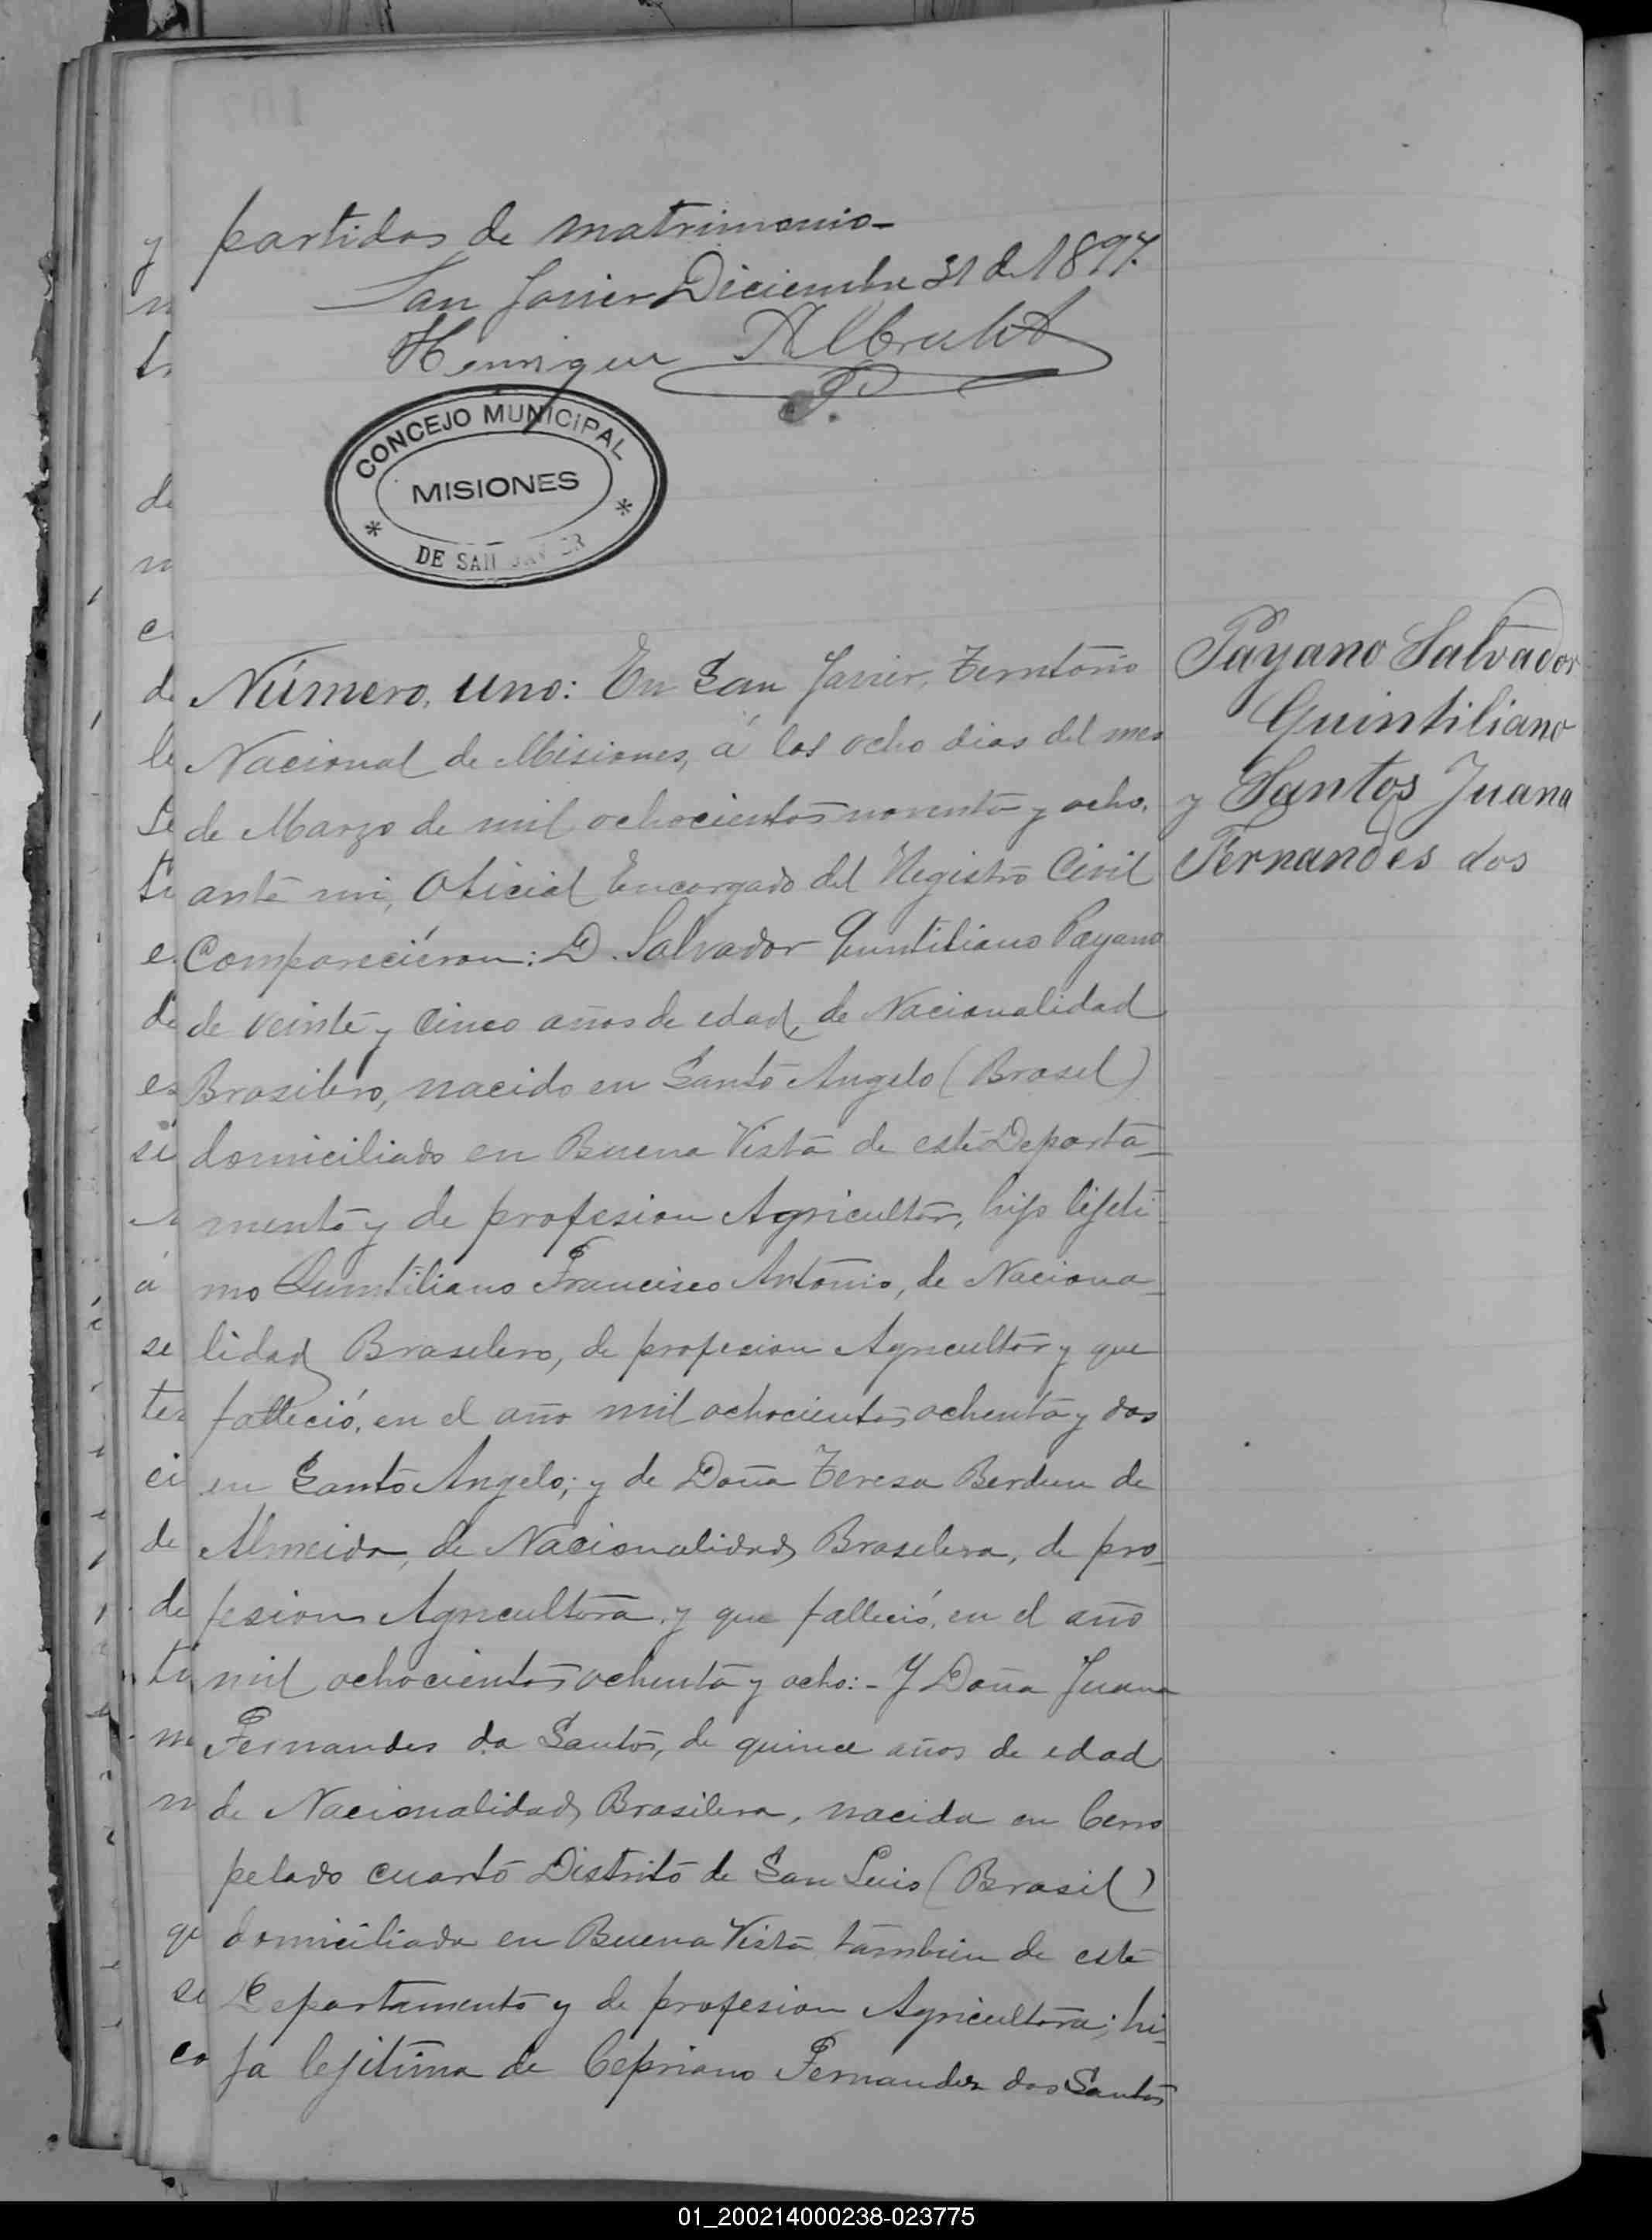 partidas de matrimonio-
San Javier Diciembre 31 de 1897.
Henrique Albrecht
CONCEJO MUNICIPAL
MISIONES
DE SAN JAVIER
Número, uno: En San Javier, Territorio
Nacional de Misiones, á los ocho dias del mes
de Marzo de mil ochocientos noventa y ocho,
ante mi, Oficial Encargado del Registro Civil
Compareciéron: D. Salvador Quintiliano Payano
de veinte y Cinco años de edad, de Nacionalidad
Brasilero, nacido en Santo Angelo (Brasel)
domiciliado en Buena Vista de este Departa-
mento y de profesion Agricultor, hijo lejiti-
mo Quintiliano Francisco Antonio, de Naciona-
lidad Braselero, de profesion Agricultor y que
falleció, en el año mil ochocientos ochenta y dos
en Santo Angelo; y de Doña Teresa Berdun de
Almeida, de Nacionalidad Braselera, de pro-
fesion Agricultora, y que falleció, en el año
mil ochocientos ochenta y ocho:- Y Doña Juana
Fernandes da Santos, de quince años de edad
de Nacionalidad Brasilera, nacida en Cerro
pelado cuarto Distrito de San Luis (Brasil)
domiciliada en Buena Vista tambien de este
Departamento y de profesion Agricultora; hi-
ja lejitima de Cepriano Fernandez dos Santos
Payano Salvador
Quintiliano
y Santos Juana
Fernandes dos
y
de
e
de
se
e
de
es
si
á
se
ter
ci
de
de
m
qe
se
co
01_200214000238-023775